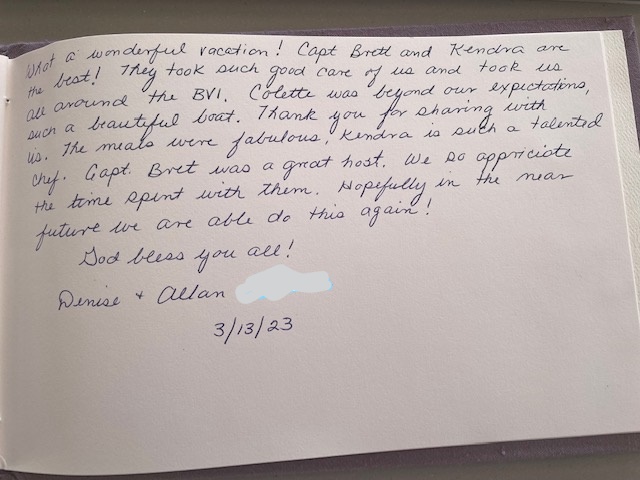 What a wonderful vacation! Capt Brett and Kendra are
the best! They took such good care of us and took us
all around the BVI. Colette was beyond our expectations,
such a beautiful boat. Thank you for sharing with
us. The meals were fabulous, Kendra is such a talented
chef. Capt. Bret was a great host. We so appriciate
the time spent with them. Hopefully in the near
future we are able do this again!
God bless you all!
Denise + Allan
3/13/23